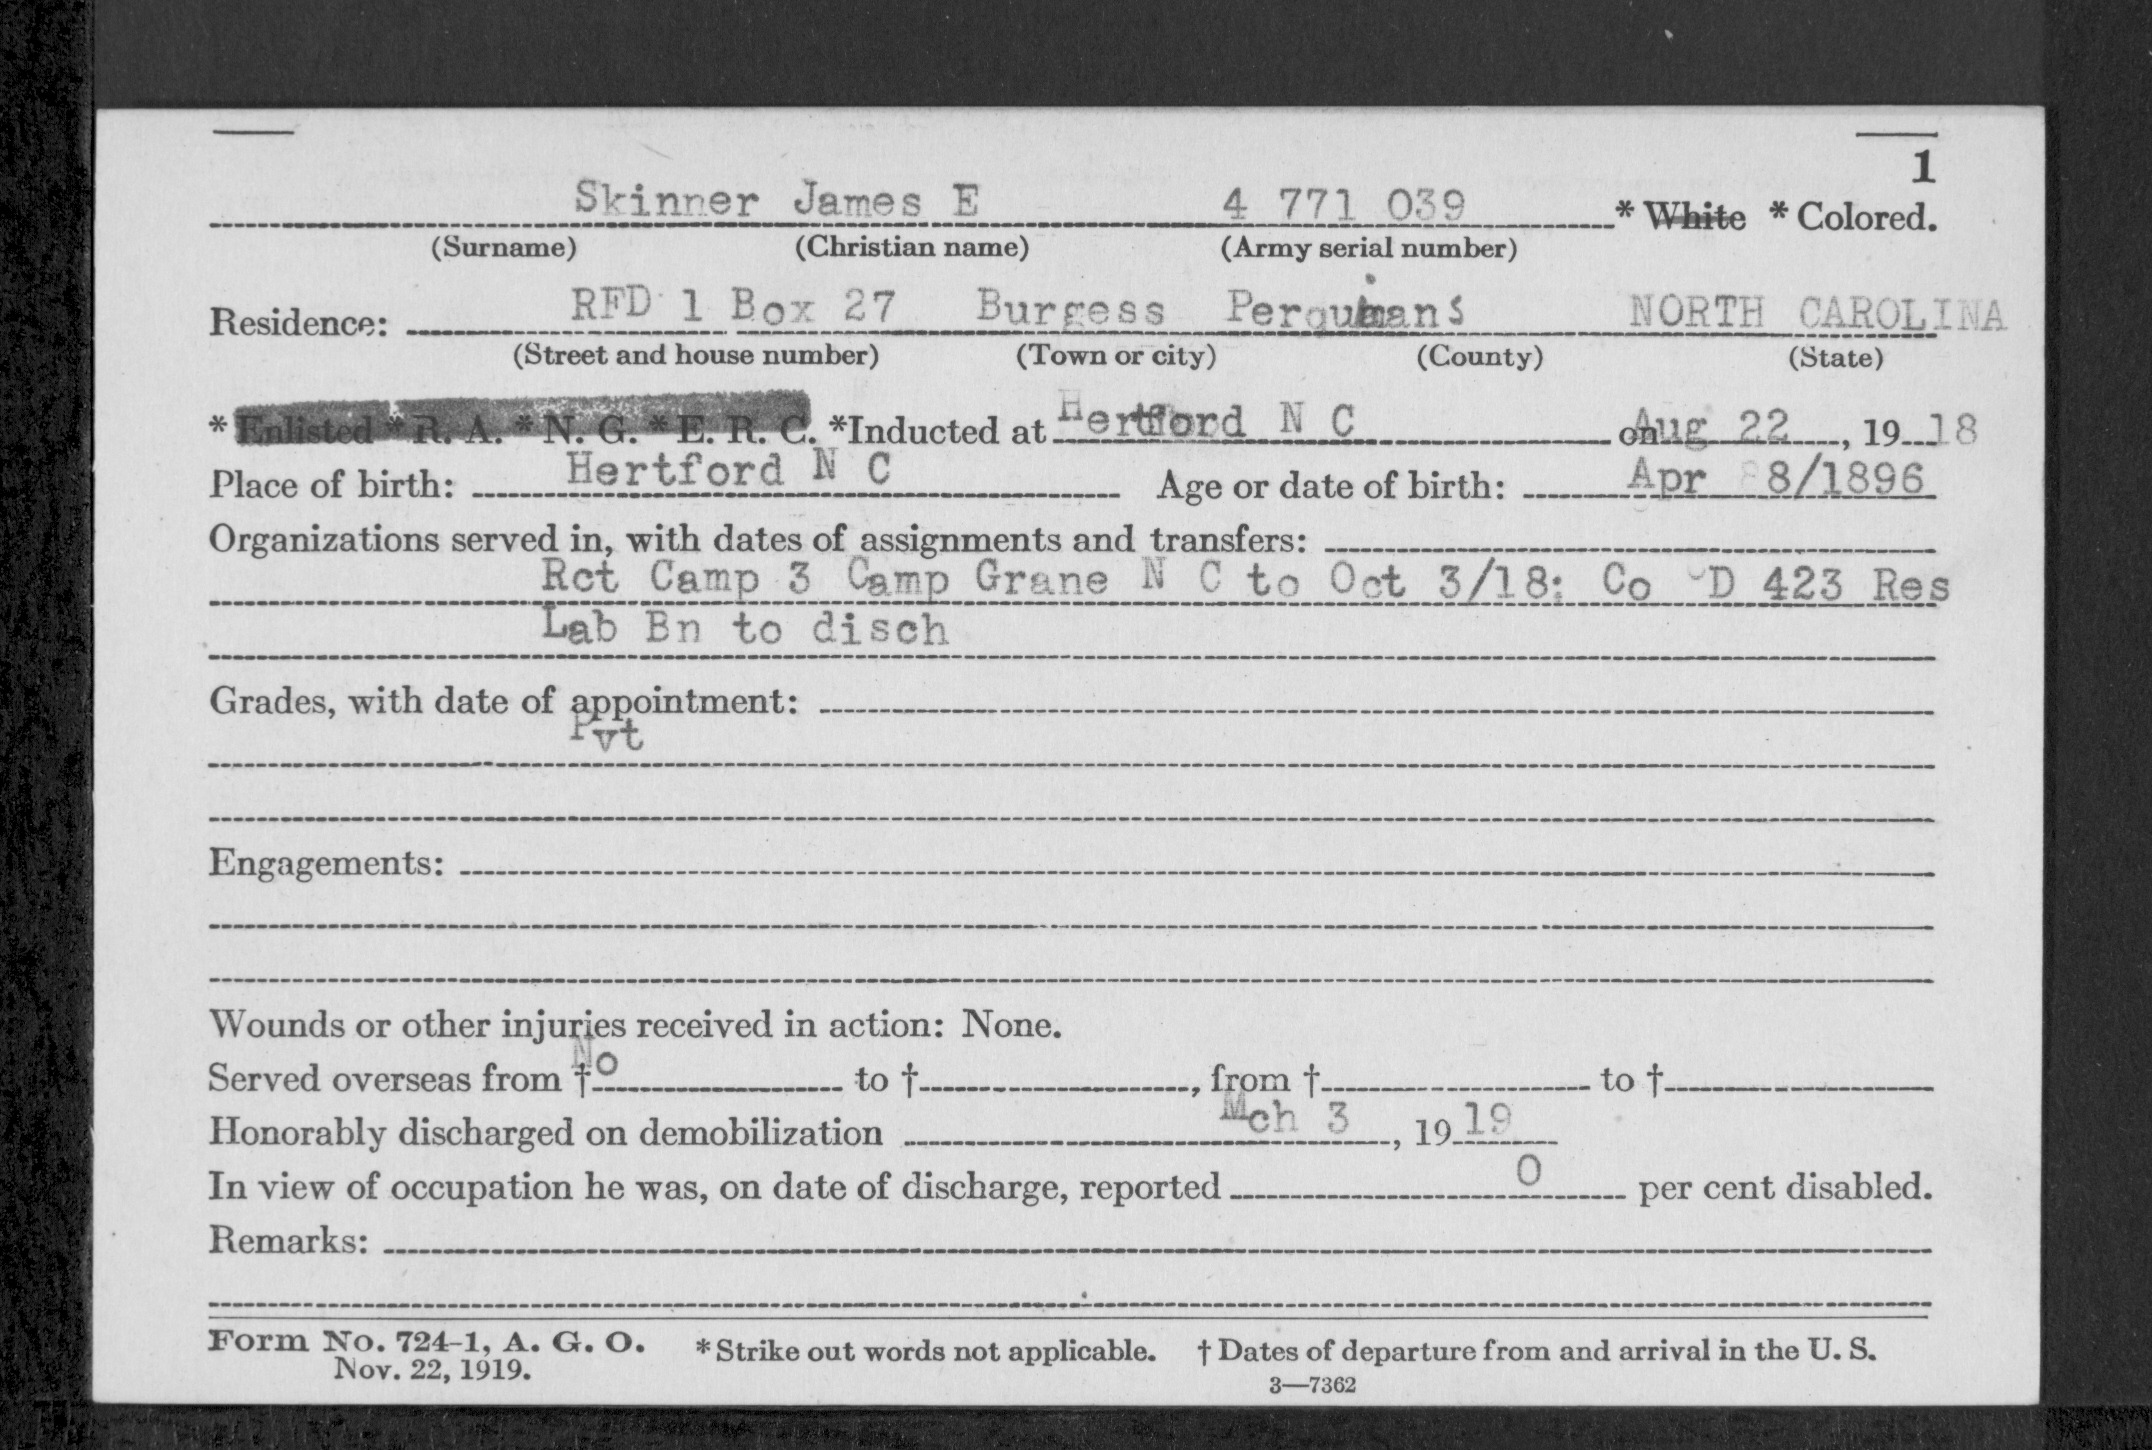 1
Skinner James E 4 771 039 * White * Colored.
(Surname) (Christian name) (Army serial number)
Residence: RFD 1 Box 27 Burgess Perquimans NORTH CAROLINA
(Street and house number) (Town or city) (County) (State)
* Enlisted * R. A. * N. G. * E. R. C. *Inducted at Hertford N C on Aug 22, 1918
Place of birth: Hertford N C Age or date of birth: Apr 8/1896
Organizations served in, with dates of assignments and transfers:
Rct Camp 3 Camp Grane N C to Oct 3/18; Co D 423 Res
Lab Bn to disch
Grades, with date of appointment:
Pvt
Engagements:
Wounds or other injuries received in action: None.
Served overseas from † No to †, from † to †
Honorably discharged on demobilization Mch 3, 1919
In view of occupation he was, on date of discharge, reported 0 per cent disabled.
Remarks:
Form No. 724-1, A. G. O. * Strike out words not applicable. † Dates of departure from and arrival in the U. S.
Nov. 22, 1919.
3—7362